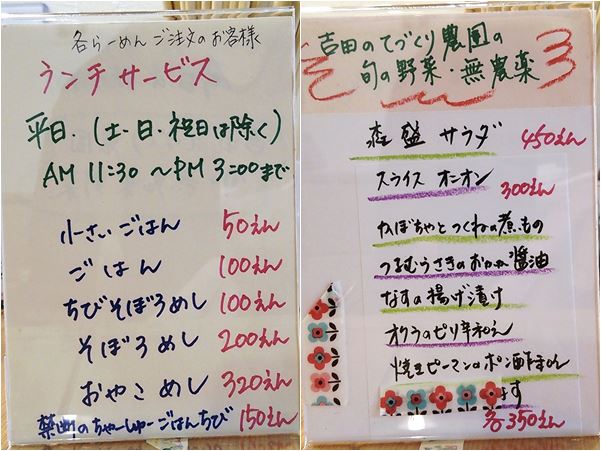 各らーめんご注文のお客様
ランチサービス
平日.(土・日・祝日は除く)
AM 11:30 〜PM 3:00まで
小さいごはん 50えん
ごはん 100えん
ちびそぼろめし 100えん
そぼろめし 200えん
おやこめし 320えん
禁断のちゃーしゅーごはんちび 150えん
吉田のてづくり農園の
旬の野菜・無農薬
森盛サラダ 450えん
スライスオニオン
300えん
かぼちゃとつくねの煮もの
つるむらさきのおかか醤油
なすの揚げ漬け
オクラのピリ辛和え
焼きピーマンのポン酢
ます
各350えん